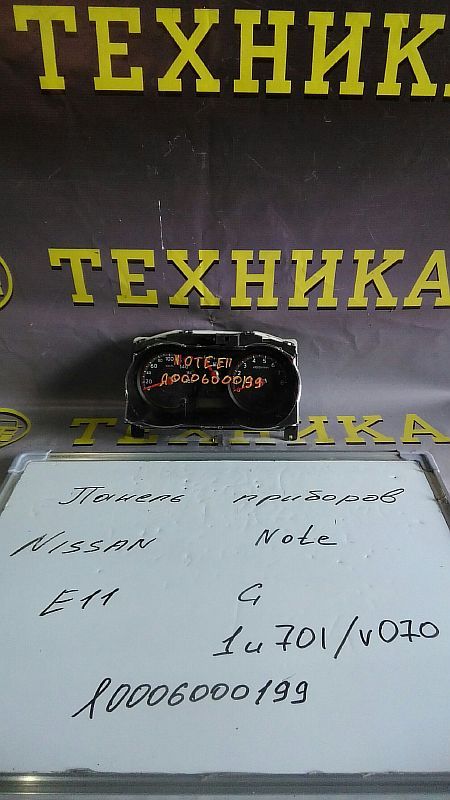 ТЕХНИКА
ТЕХНИКА
NOTE E11
10006000199
ТЕХНИКА
Панель приборов
NISSAN Note
E11 G
1u70I/v070
10006000199